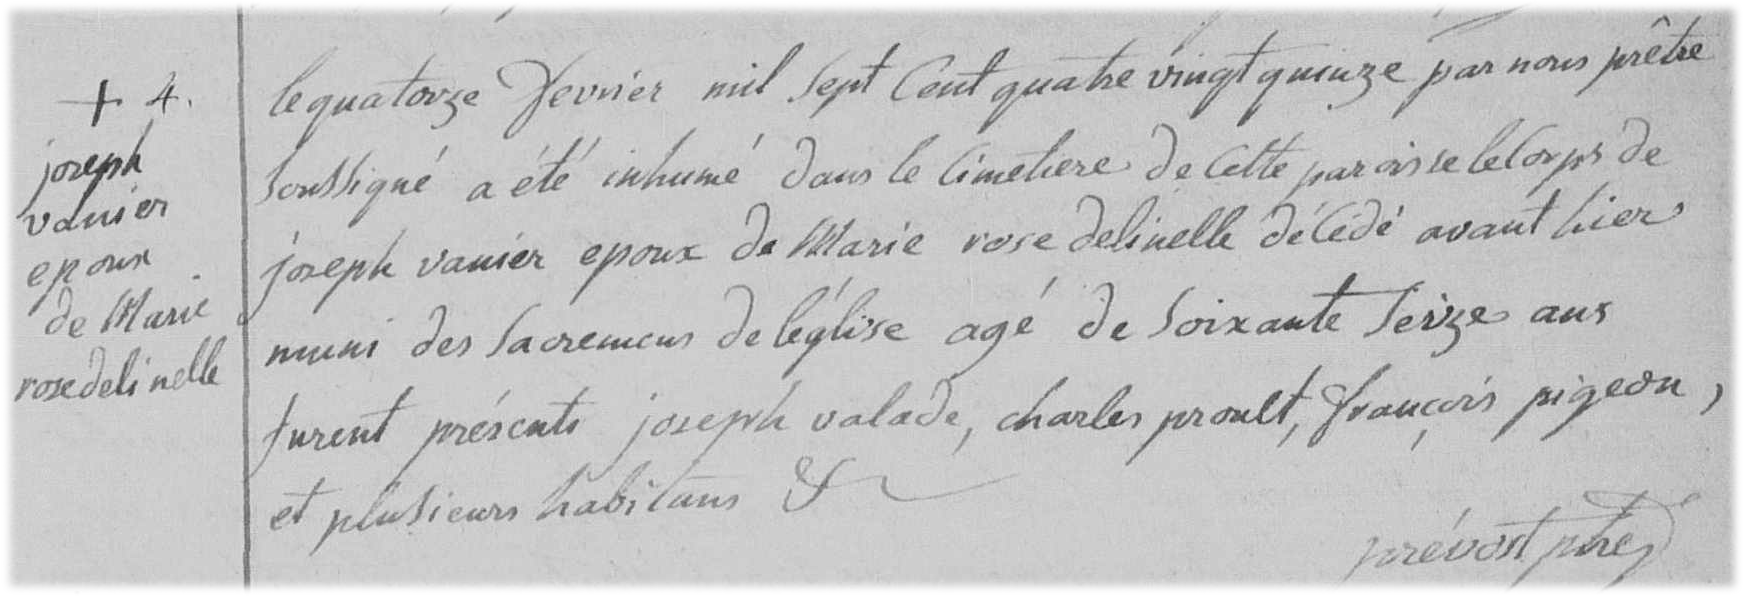 + 4.
joseph
vanier
epoux
de Marie
rose delinelle
le quatorze fevrier mil sept Cent quatre vingt quinze par nous prêtre
soussigné a été inhumé dans le Cimetiere de Cette paroisse le Corps de
joseph vanier epoux de Marie rose delinelle décédé avant hier
muni des sacremens de l'église agé de soixante seize ans
furent présents joseph valade, charles proult, françois pigeon,
et plusieurs habitans &
prévost ptre